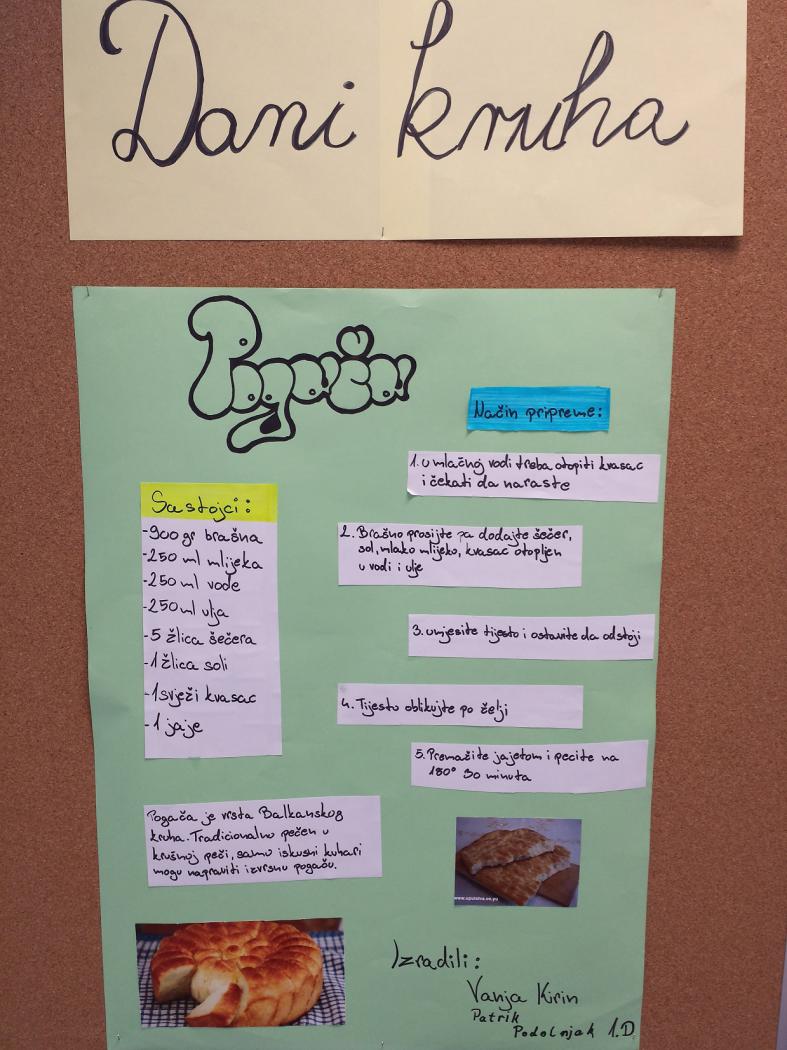 Dani kruha
Pogača
Način pripreme:
1. u mlačnoj vodi treba otopiti kvasac
i čekati da naraste
Sastojci:
-900 gr brašna
-250 ml mlijeka
-250 ml vode
-250 ml ulja
-5 žlica šećera
-1 žlica soli
-1 svježi kvasac
-1 jaje
2. Brašno prosijte pa dodajte šećer,
sol, mlako mlijeko, kvasac otopljen
u vodi i ulje
3. umjesite tijesto i ostavite da odstoji
4. Tijesto oblikujte po želji
5. Premažite jajetom i pecite na
180° 30 minuta
Pogača je vrsta Balkanskog
kruha. Tradicionalno pečen u
krušnoj peći, samo iskusni kuhari
mogu napraviti izvrsnu pogaču.
Izradili:
Vanja Kirin
Patrik
Podolnjak 1.D